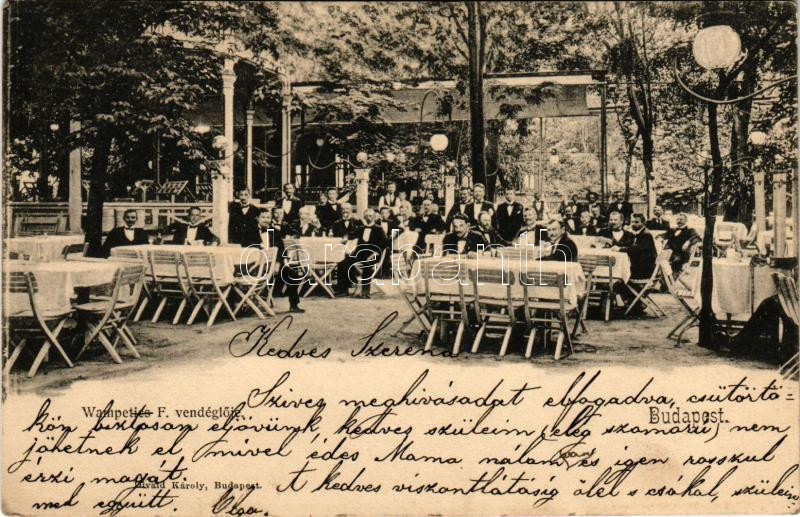 darabanth
Kedves Szeréna
Wampetics F. vendéglője.
Budapest.
Szives meghivásadat elfogadva, csütörtö-
kön biztosan eljövünk, kedves szüleim (elég szomorú) nem
jöhetnek el, mivel édes Mama nálam van és igen rosszul
érzi magát. A kedves viszontlátásig ölel s csókol, szüleim-
mel együtt. Olga.
Divald Károly, Budapest.